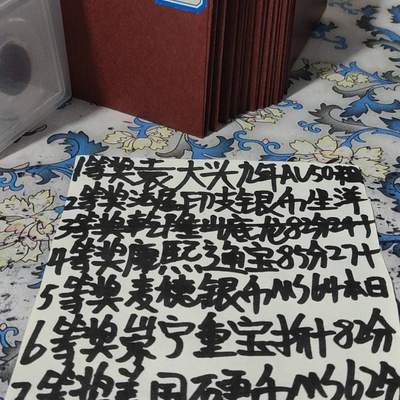 1等奖袁大头九年AU50
2等奖法属印支银币坐洋
3等奖乾隆
4等奖康熙通宝85分27十
5等奖麦穗银币MS64本日
6等奖崇宁重宝折十82分
7等奖美国硬币MS62分